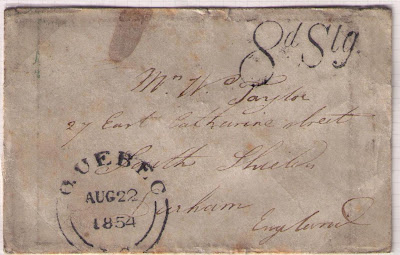 8d Stg.
Mrs W.
Taylor
27 East Catharine street
South Shields
Durham
England
QUEBEC
AUG 22
1854